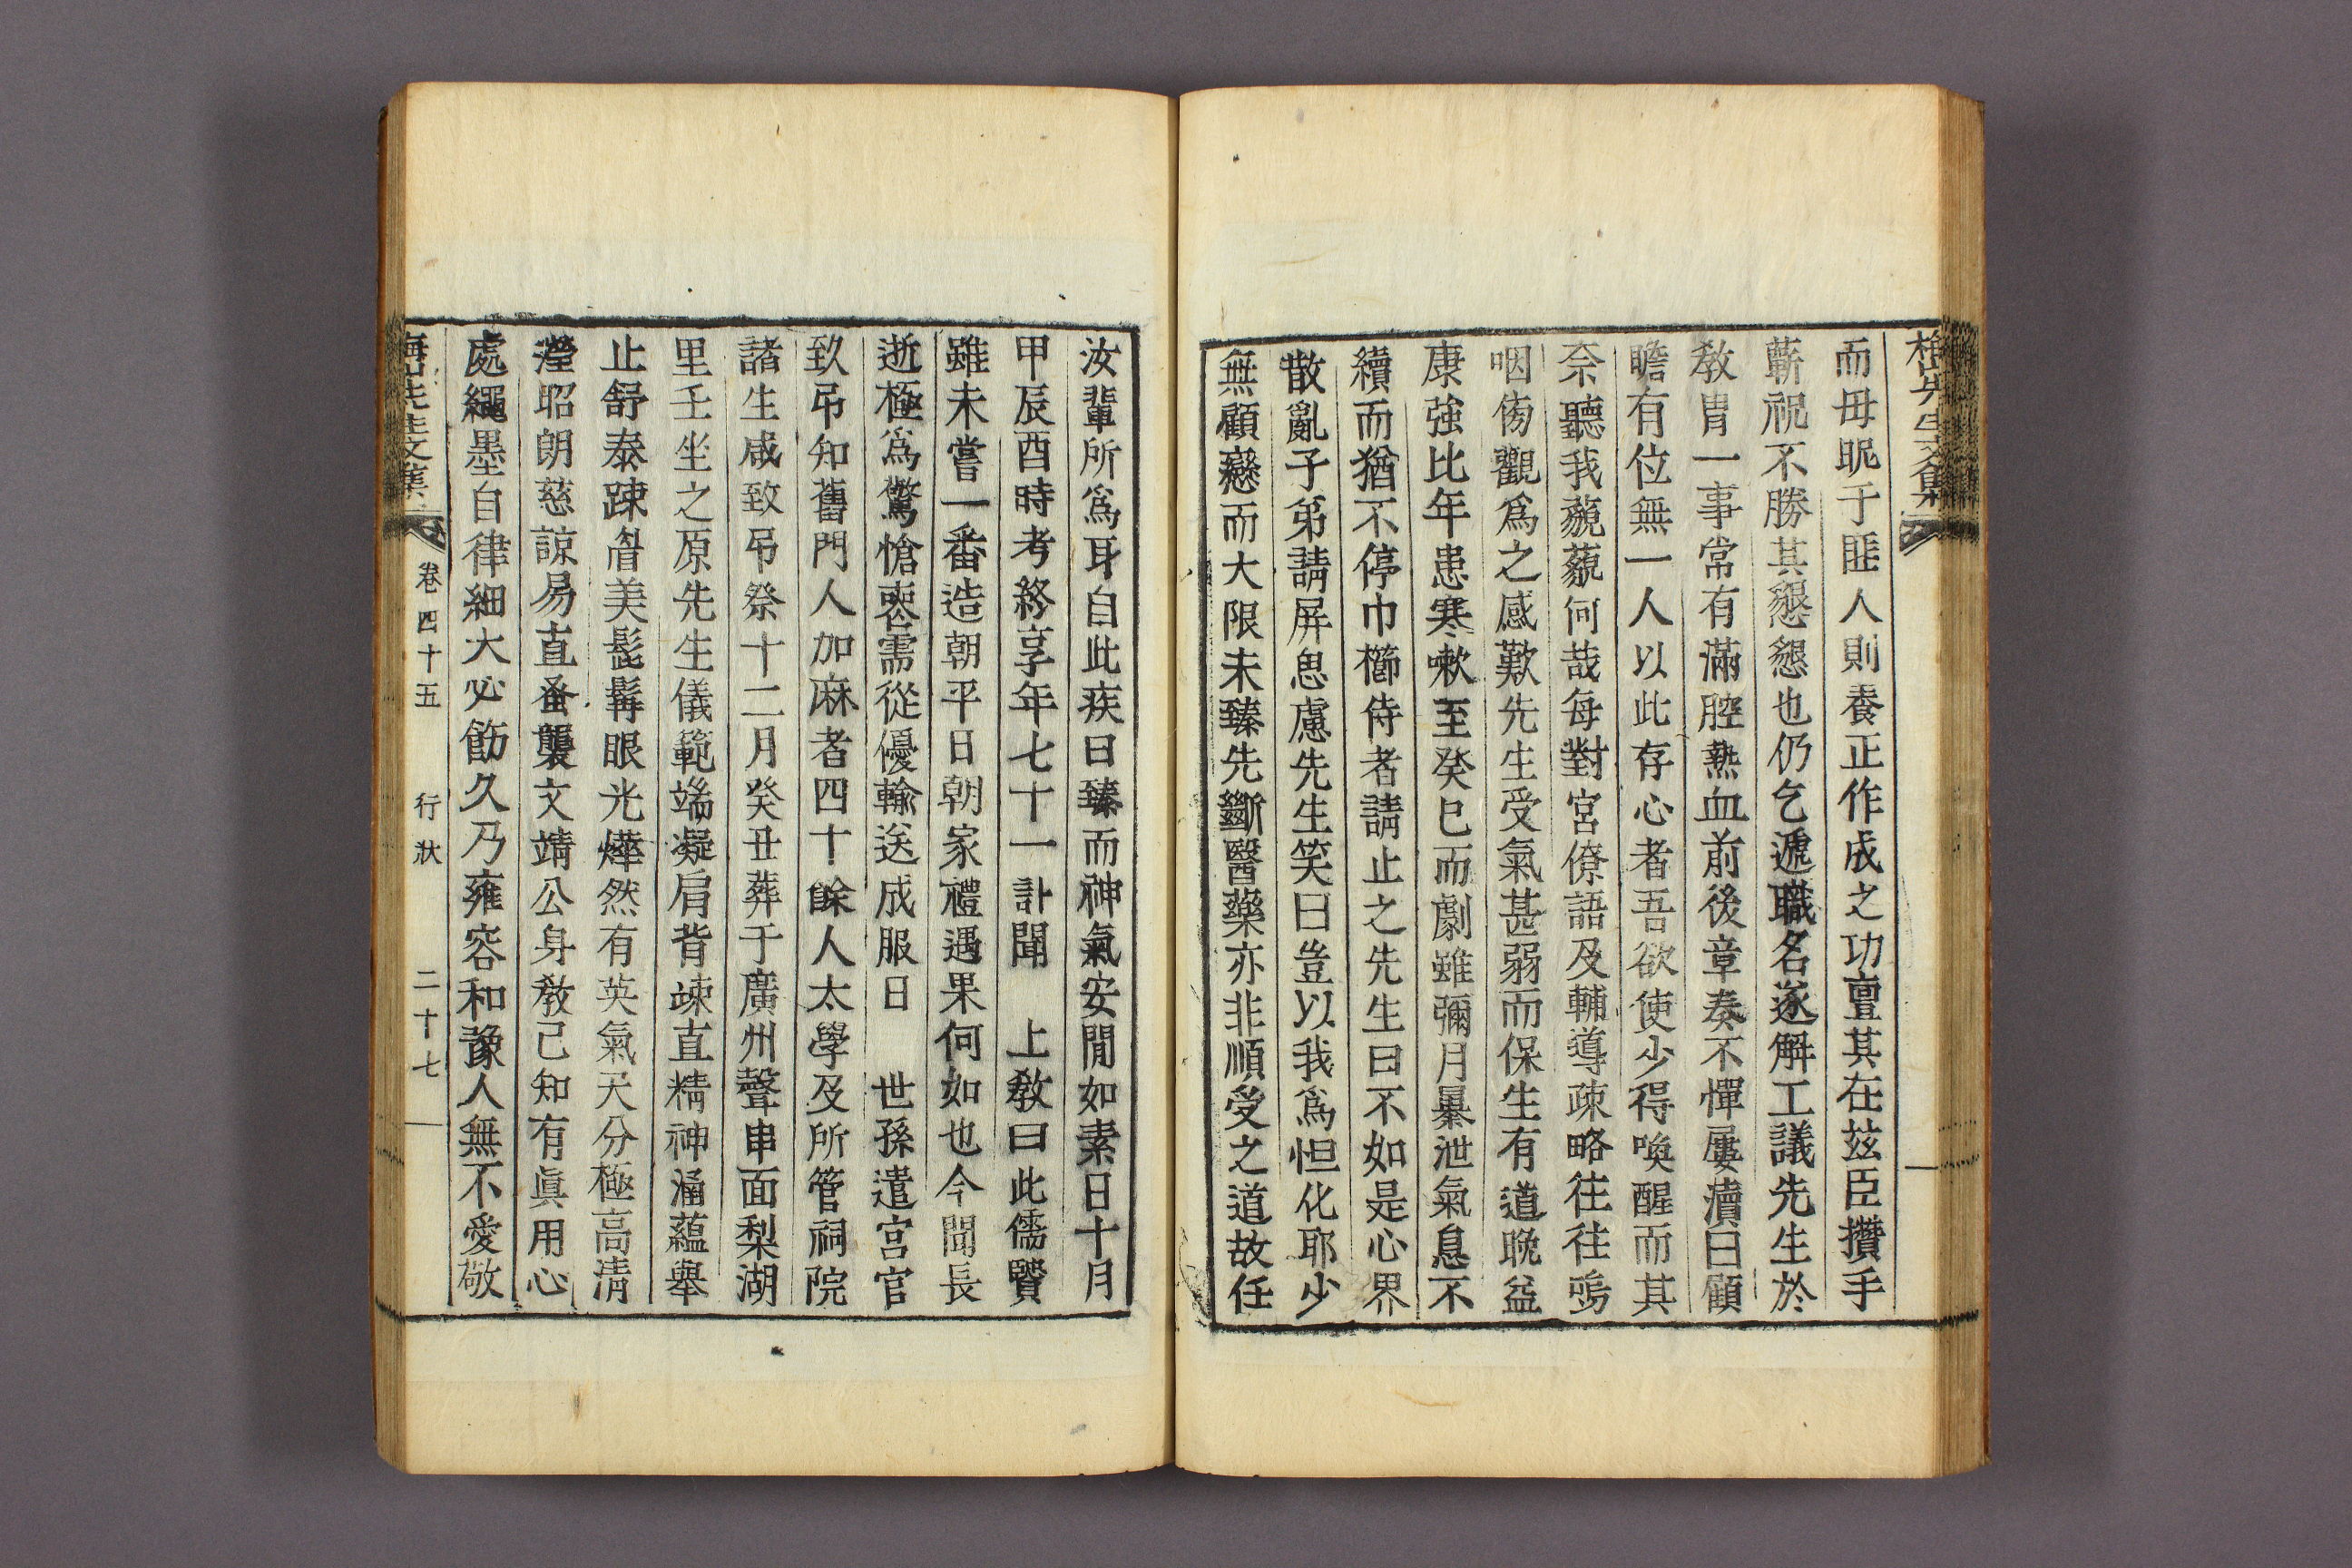 梅山先生文集
而毋昵于匪人則養正作成之功亶其在玆臣攢手
蘄祝不勝其懇懇也仍乞遞職名遂解工議先生於
敎胄一事常有滿腔熱血前後章奏不憚屢瀆曰顧
瞻有位無一人以此存心者吾欲使少得喚醒而其
奈聽我藐藐何哉每對宮僚語及輔導疎略往往嗚
咽傍觀爲之感歎先生受氣甚弱而保生有道晩益
康強比年患寒嗽至癸巳而劇雖彌月暴泄氣息不
續而猶不停巾櫛侍者請止之先生曰不如是心界
散亂子弟請屏思慮先生笑曰豈以我爲怛化耶少
無顧戀而大限未臻先斷醫藥亦非順受之道故任
汝輩所爲耳自此疾日臻而神氣安閒如素日十月
甲辰酉時考終享年七十一訃聞　上敎曰此儒賢
雖未嘗一番造朝平日朝家禮遇果何如也今聞長
逝極爲驚愴喪需從優輸送成服日　世孫遣宮官
致吊知舊門人加麻者四十餘人太學及所管祠院
諸生咸致吊祭十二月癸丑葬于廣州聲串面梨湖
里壬坐之原先生儀範端凝肩背竦直精神涵蘊擧
止舒泰疎眉美髭髯眼光燁然有英氣天分極高淸
瀅昭朗慈諒易直蚤襲文靖公身敎己知有眞用心
處繩墨自律細大必飭久乃雍容和豫人無不愛敬
先生文集　卷四十五　行狀　二十七